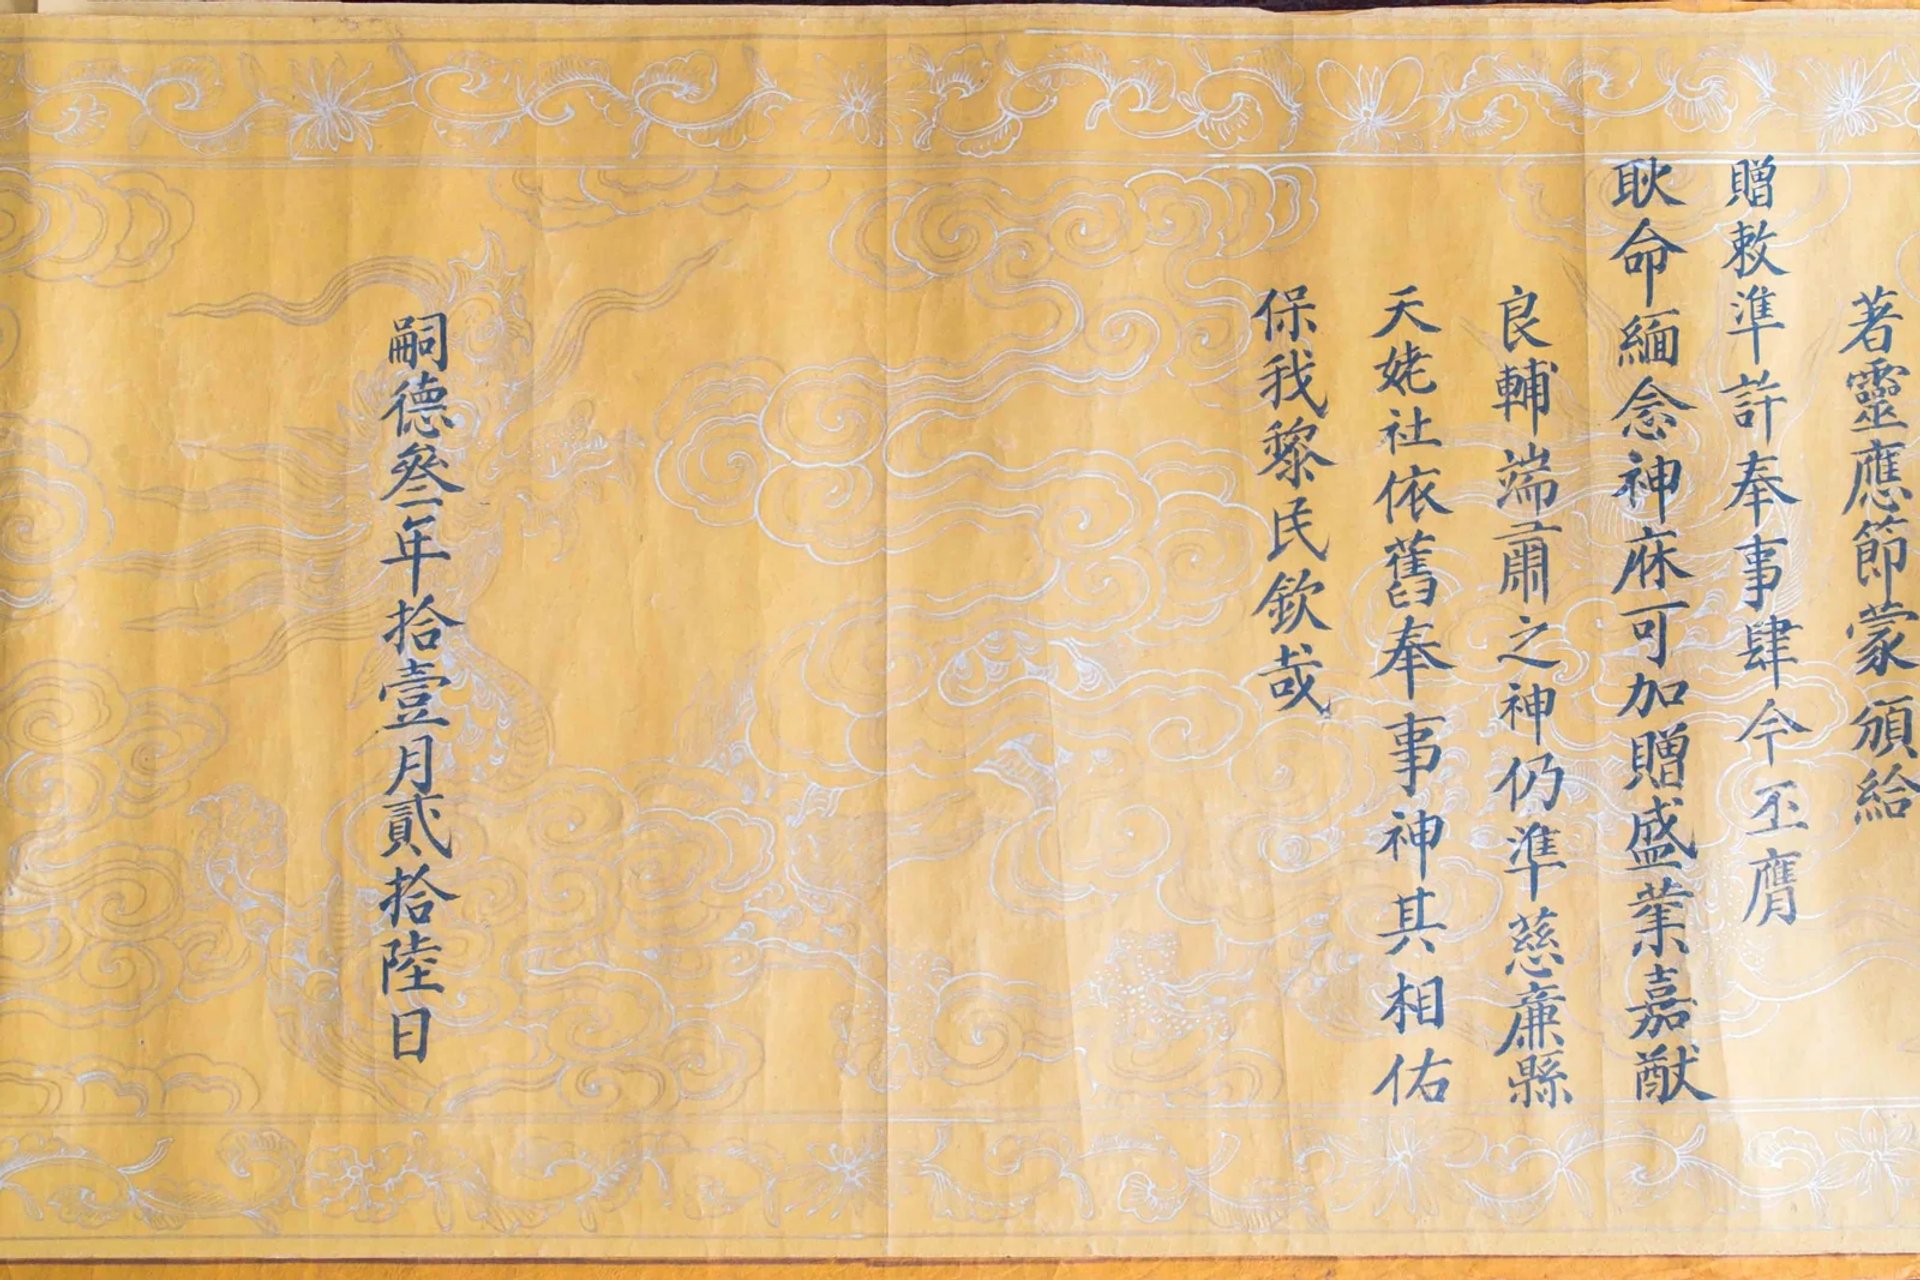 著靈應節蒙頒給
贈敕準許奉事肆今丕膺
耿命緬念神庥可加贈盛業嘉猷
良輔端肅之神仍準慈廉縣
天姥社依舊奉事神其相佑
保我黎民欽哉
嗣德叄年拾壹月貳拾陸日